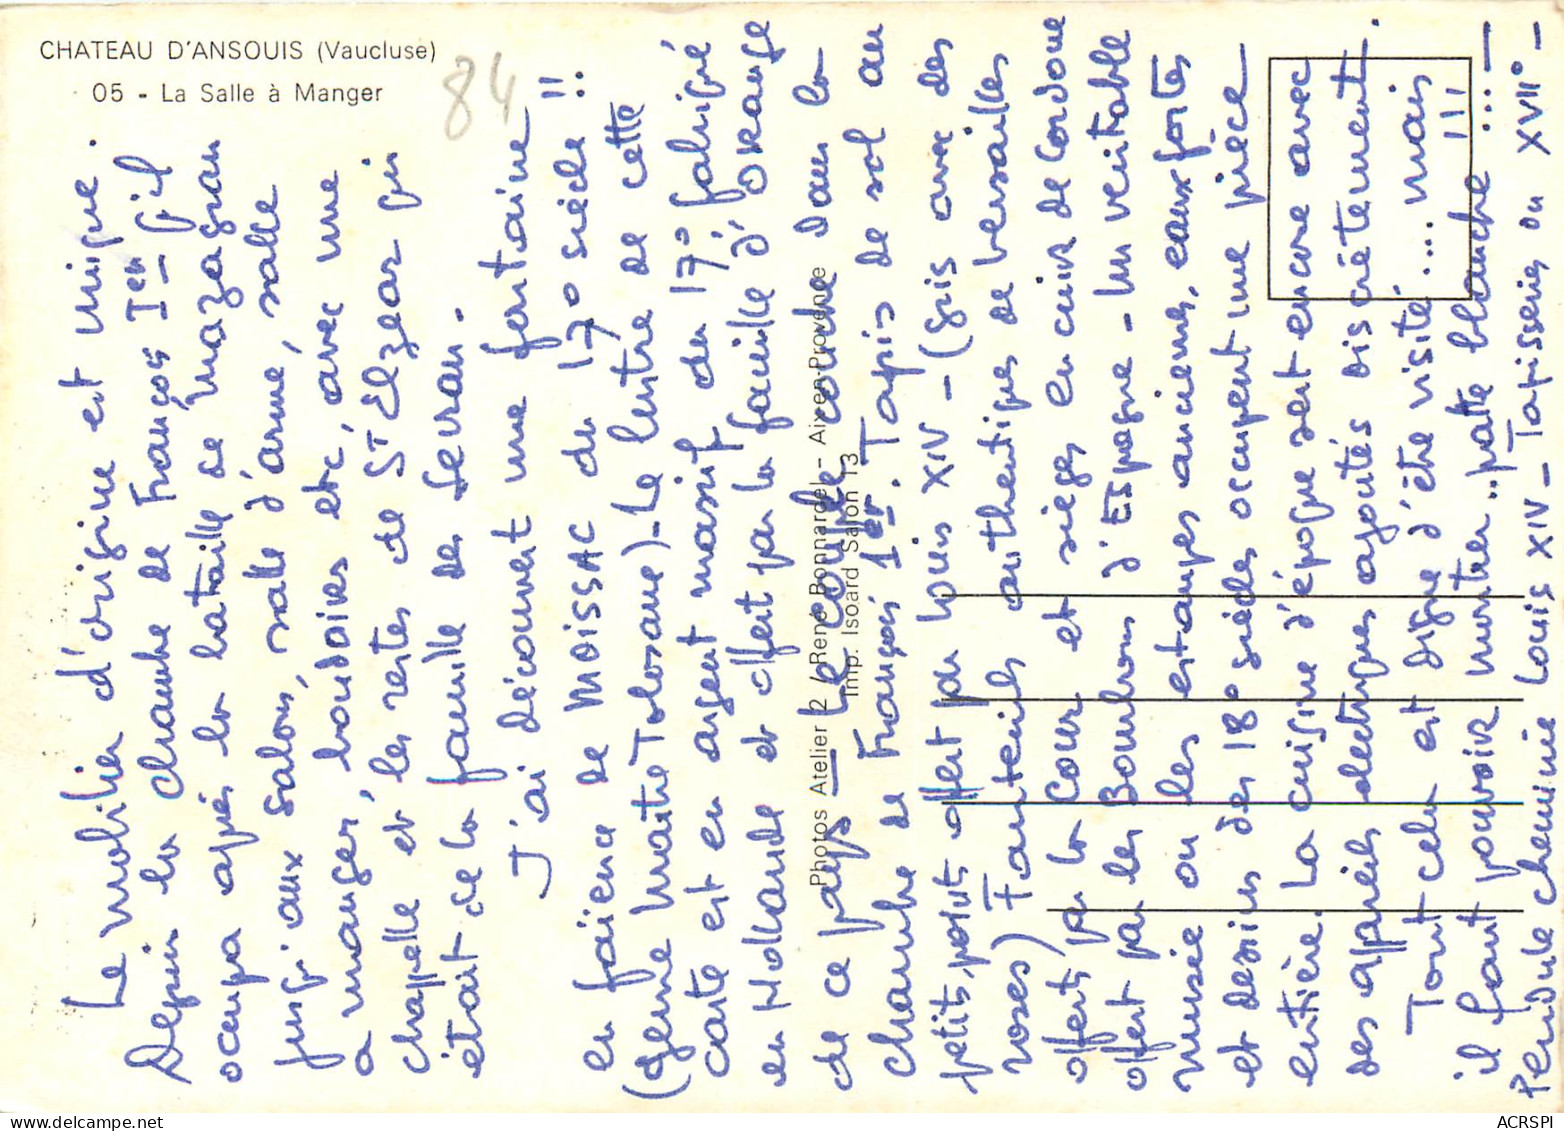 CHATEAU D'ANSOUIS (Vaucluse)
05 - La Salle à Manger
84
Le mobilier d'origine est unique.
Depuis la chambre de François Ier qu'il
occupa après la bataille de Marignan
jusqu'aux salons, salle d'arme, salle
a manger, boudoires etc, avec une
chapelle et les restes de St Elzear qui
était de la famille des Sevran.
J'ai découvert une fontaine
en faïence de MOISSAC du 17° siècle !!
(genre maitre Tolosane) - Le lustre de cette
carte est en argent massif du 17° fabriqué
en Hollande et offert par la famille d'ORANGE
de ce pays - Le couple couche dans la
chambre de François 1er. Tapis de sol au
petits points offert par Louis XIV - (gris avec des
roses) Fauteuils authentiques de versailles
offerts par la Cour et sièges en cuir de Cordoue
offert par les Bourbons d'Espagne - Un veritable
musée ou les estampes anciennes, eaux fortes
et dessins des 18° siècles occupent une pièce
entière. La cuisine d'époque sert encore avec
des appareils electriques ajoutés discrètement.
Tout cela est digne d'être visité .... mais
il faut pouvoir montrer .. patte blanche ... !!!
Pendule cheminée Louis XIV - Tapisseries du XVII° -
Photos Atelier 2 / René Bonnardel - Aix-en-Provence
Imp. Isoard Salon 13
ACRSPI